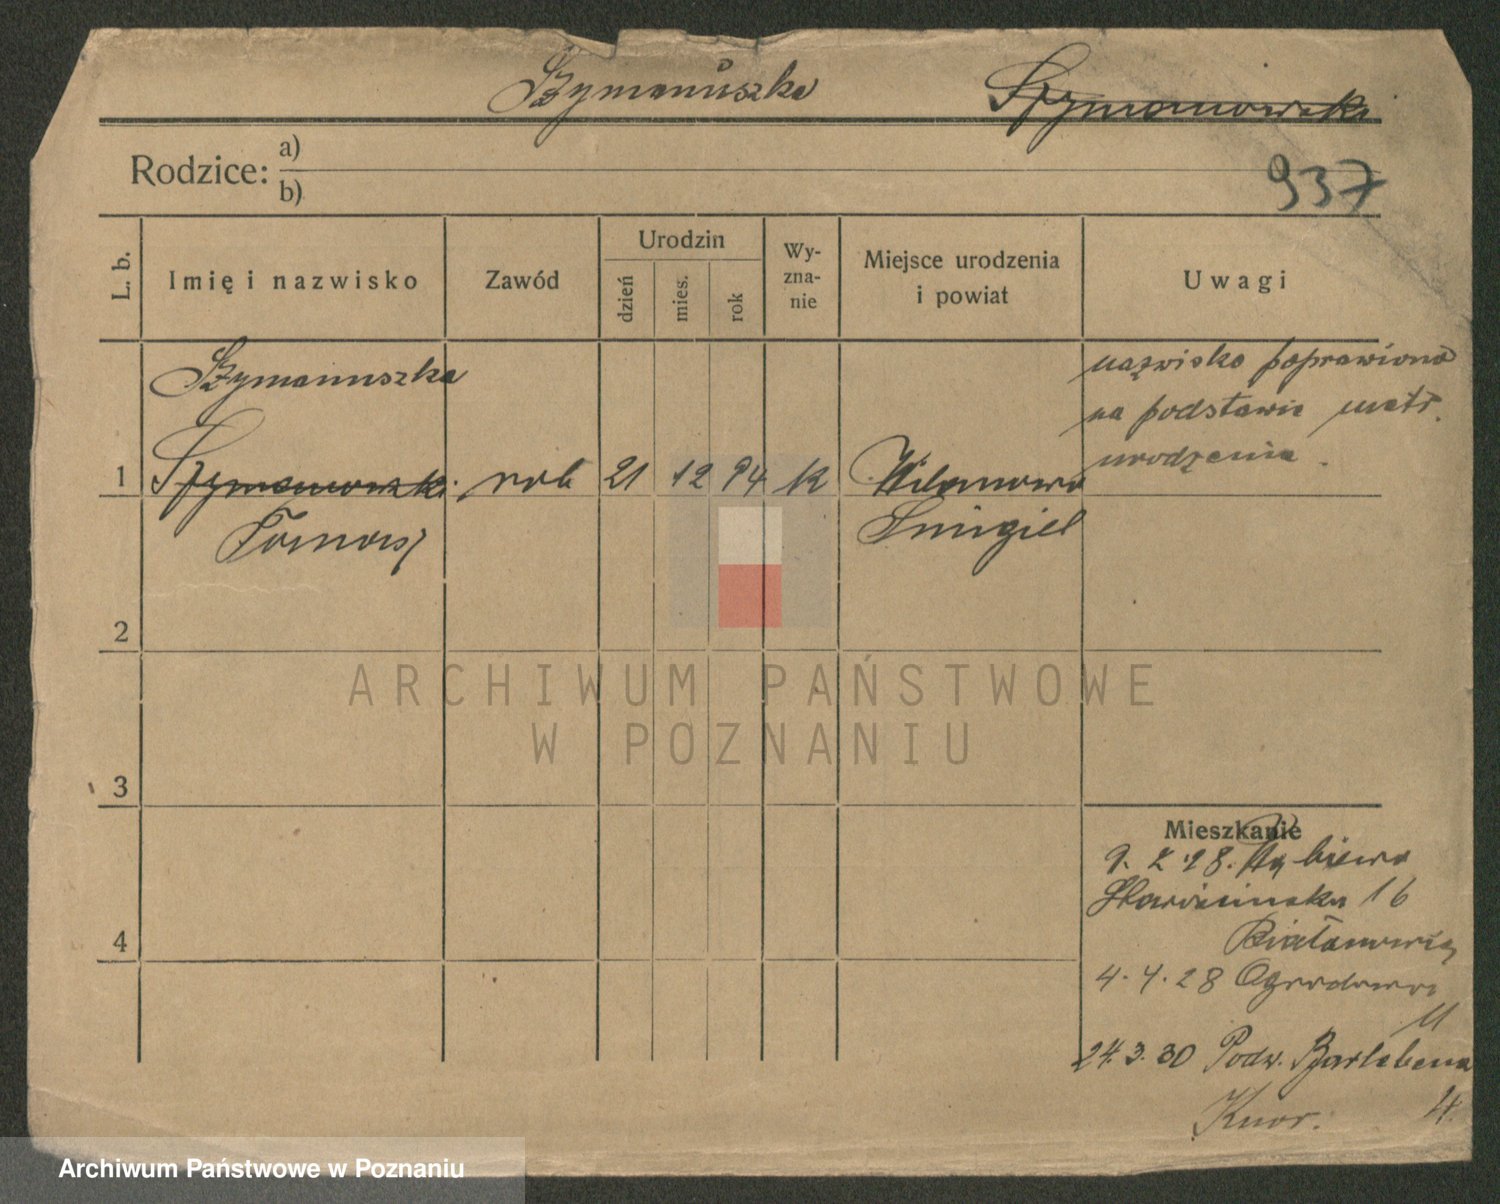 Szymanuszka Szymanowski
Rodzice: a)
b)
937
L. b. Imię i nazwisko Zawód Urodzin dzień mies. rok Wy-zna-nie Miejsce urodzenia i powiat Uwagi
Szymanuszka
nazwisko poprawiono
na podstawie metr.
urodzenia.
1 Szymanowski rob 21 12 94 k Wilanowo
Tomasz Śmigiel
2
ARCHIWUM PAŃSTWOWE
W POZNANIU
3
Mieszkanie
9. 2. 28.
16
4
4. 4. 28 Ogrodowa
11
24. 3. 30 Podw. Bartebena
Knor. 4.
Archiwum Państwowe w Poznaniu